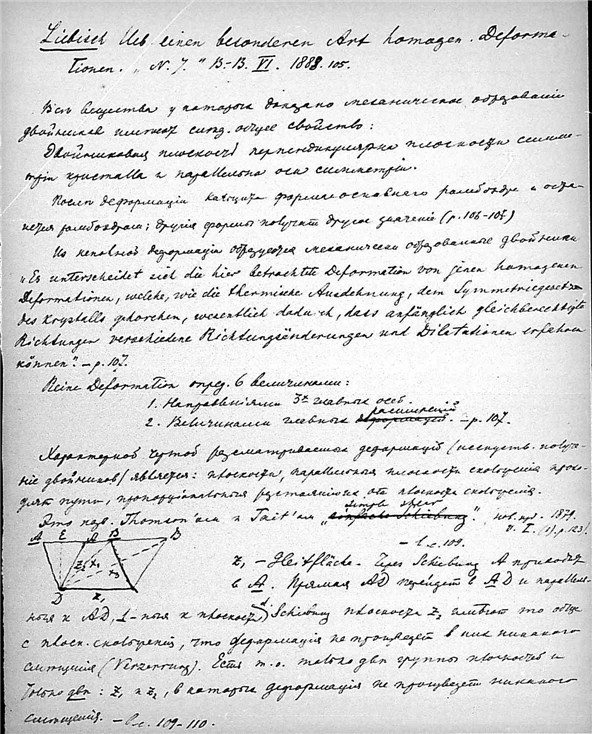 Liebisch Ueb. einen besonderen Art homogen. Deforma-
tionen. „N. J." B-B. VI. 1888. 105.
Всѣ вещества у которых доказано механическое образованіе
двойников имѣют слѣд. общее свойство:
Двойниковая плоскость перпендикулярна плоскости симме-
тріи кристалла и параллельна оси симметріи.
Послѣ деформаціи кальцита формы основного ромбоэдра и оста-
нется ромбоэдром; другія формы получат другое значеніе (p. 106-107)
Из неполной деформаціи образуются механически образованные двойники
„Es unterscheidet sich die hier betrachtete Deformation von jenen homogenen
Deformationen, welche, wie die thermische Ausdehnung, dem Symmetriegesetze
des Krystalls gehorchen, wesentlich dadurch, dass anfänglich gleichberechtigte
Richtungen verschiedene Richtungsänderungen und Dilatationen erfahren
können." – p. 107.
Reine Deformation опред. 6 величинами:
1. Направленіями 3х главных осей.
2. Величинами главных расширений. – p. 107.
Характерной чертой разсматриваемых деформаціи (искусств. получе-
ніе двойников) является: плоскости, параллельныя плоскости скольженія прохо-
дят пути, пропорціональные разстояніям от плоскости скольженія.
Это назв. Thomson'ом и Tait'ом „simple shear einfache Schiebung". 1879.
T. I. (1). p. 123).
– l. c. 109.
A E A B B
D
z₁ – Gleitfläche. Через Schiebung A приходит
в A. Прямая AD перейдет в AD и
к AD, ⊥-ная к плоскости Schiebung плоскость z₂ имѣют то общее
с плоск. скольженія, что деформація не произведет в них никакого
смѣщенія (Verzerrung). Есть т. о. только двѣ группы плоскостей и
только двѣ: z₁ и z₂, в которых деформація не произведет никакого
смѣщенія. – l. c. 109-110.